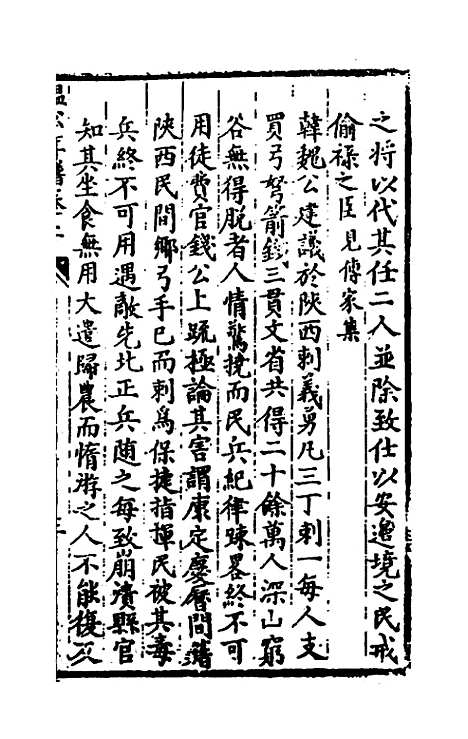 之将以代其任二人並除致仕以安邉境之民戒
偷禄之臣見傳家集
韓魏公建議於陜西刺義勇凡三丁刺一每人支
買弓弩箭錢三貫文省共得二十餘萬人深山窮
谷無得脱者人情驚撓而民兵紀律踈畧終不可
用徒費官錢公上疏極論其害謂康定慶曆間籍
陜西民間鄉弓手已而刺爲保捷指揮民被其毒
兵終不可用遇敵先北正兵随之每致崩潰縣官
知其坐食無用大遣歸農而惰游之人不能復
温公年譜卷